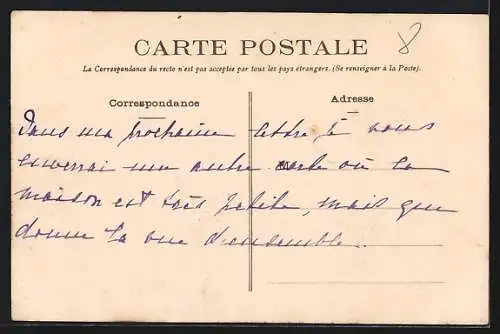 8
CARTE POSTALE
La Correspondance du recto n'est pas acceptée par tous les pays étrangers. (Se renseigner à la Poste).
Correspondance
Adresse
Dans ma prochaine lettre je vous
enverrai une autre carte où la
maison est très petite, mais qui
donne la vue d'ensemble.